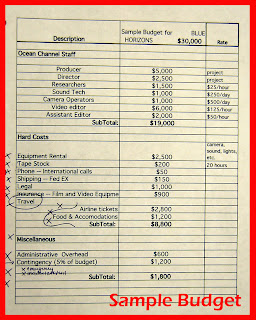 Sample Budget for BLUE
Description HORIZONS $30,000 Rate
Ocean Channel Staff
Producer $5,000 project
Director $2,500 project
Researchers $1,500 $25/hour
Sound Tech $1,000 $250/day
Camera Operators $1,000 $500/day
Video editor $6,000 $125/hour
Assistant Editor $2,000 $50/hour
SubTotal: $19,000
Hard Costs
camera,
sound, lights,
Equipment Rental $2,500 etc.
Tape Stock $200 20 hours
Phone — International calls $50
Shipping — Fed EX $150
Legal $1,000
Insurance — Film and Video Equipme $900
Travel
Airline tickets $2,800
Food & Accomodations $1,200
SubTotal: $8,800
Miscellaneous
Administrative Overhead $600
Contingency (5% of budget) $1,200
SubTotal: $1,800
Sample Budget